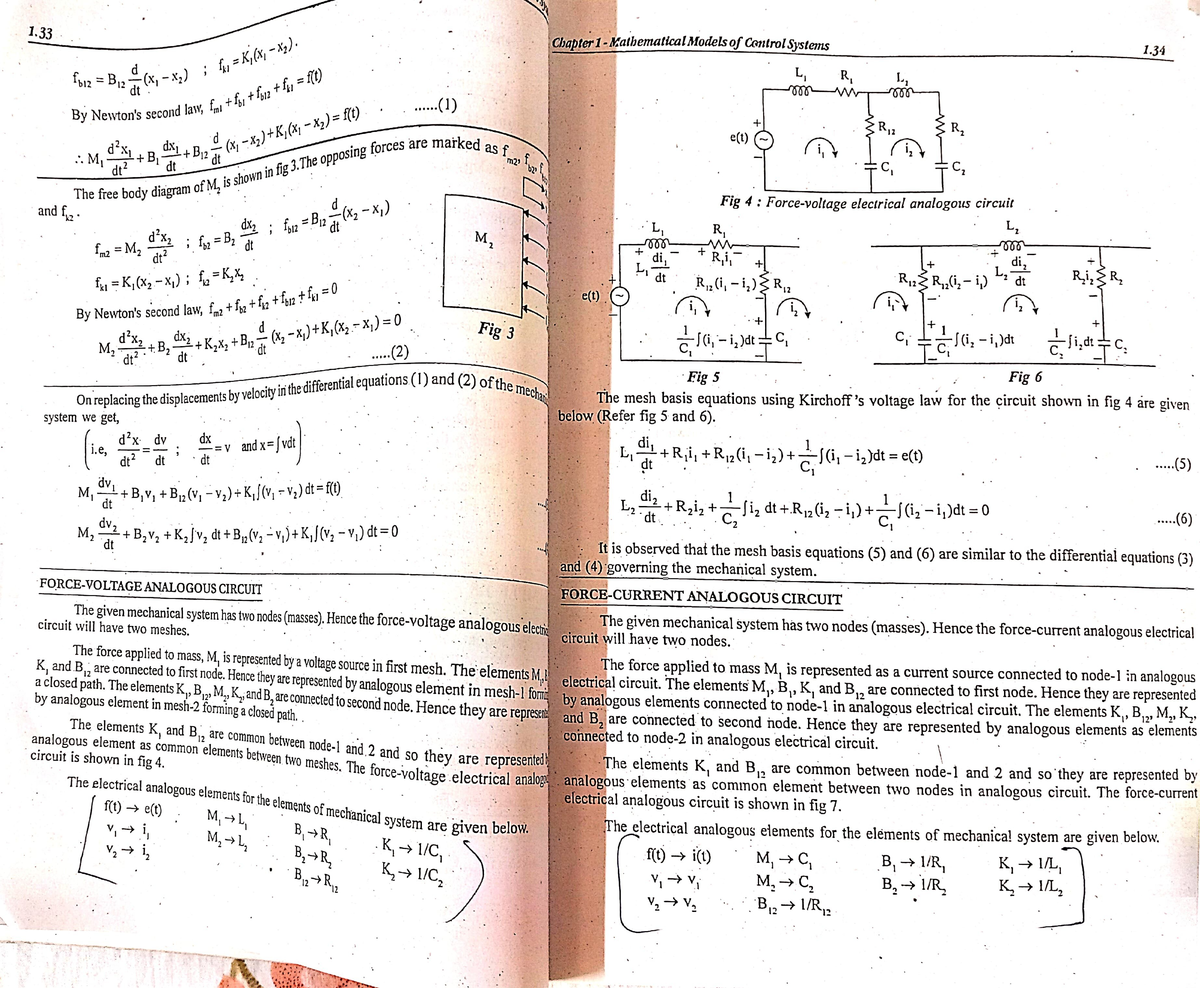 1.33
f_b12 = B_12 d/dt (x_1 – x_2) ; f_k1 = K_1(x_1 – x_2).
By Newton's second law, f_m1 + f_b1 + f_b12 + f_k1 = f(t)
∴ M_1 d²x_1/dt² + B_1 dx_1/dt + B_12 d/dt (x_1 – x_2) + K_1(x_1 – x_2) = f(t) ......(1)
The free body diagram of M_2 is shown in fig 3.The opposing forces are marked as f_m2, f_b2,
and f_k2.
f_m2 = M_2 d²x_2/dt² ; f_b2 = B_2 dx_2/dt ; f_b12 = B_12 d/dt (x_2 – x_1)
f_k1 = K_1(x_2 – x_1) ; f_k2 = K_2x_2
By Newton's second law, f_m2 + f_b2 + f_k2 + f_b12 + f_k1 = 0
M_2 d²x_2/dt² + B_2 dx_2/dt + K_2x_2 + B_12 d/dt (x_2 – x_1) + K_1(x_2 – x_1) = 0
.....(2)
M_2
Fig 3
On replacing the displacements by velocity in the differential equations (1) and (2) of the
system we get,
(i.e, d²x/dt² = dv/dt ; dx/dt = v and x = ∫vdt)
M_1 dv_1/dt + B_1v_1 + B_12(v_1 – v_2) + K_1∫(v_1 – v_2) dt = f(t)
M_2 dv_2/dt + B_2v_2 + K_2∫v_2 dt + B_12(v_2 – v_1) + K_1∫(v_2 – v_1) dt = 0
FORCE-VOLTAGE ANALOGOUS CIRCUIT
The given mechanical system has two nodes (masses). Hence the force-voltage analogous
circuit will have two meshes.
The force applied to mass, M_1 is represented by a voltage source in first mesh. The elements M_1,
K_1 and B_12 are connected to first node. Hence they are represented by analogous element in mesh-1
a closed path. The elements K_1, B_12, M_2, K_2, and B_2 are connected to second node. Hence they are
by analogous element in mesh-2 forming a closed path.
The elements K_1 and B_12 are common between node-1 and 2 and so they are represented
analogous element as common elements between two meshes. The force-voltage electrical
circuit is shown in fig 4.
The electrical analogous elements for the elements of mechanical system are given below.
f(t) → e(t) M_1 → L_1 B_1 → R_1 K_1 → 1/C_1
v_1 → i_1 M_2 → L_2 B_2 → R_2 K_2 → 1/C_2
v_2 → i_2 B_12 → R_12
Chapter 1 - Mathematical Models of Control Systems
1.34
L_1 R_1 L_2
e(t) + – i_1 R_12 i_2 R_2
C_1 C_2
Fig 4 : Force-voltage electrical analogous circuit
L_1 R_1
+ L_1 di_1/dt – + R_1i_1 –
e(t) + – i_1 R_12(i_1 – i_2) + – R_12 i_2
1/C_1 ∫(i_1 – i_2)dt + – C_1
Fig 5
L_2
R_12 + – R_12(i_2 – i_1) + L_2 di_2/dt – R_2i_2 + – R_2
i_1 i_2
C_1 + – 1/C_1 ∫(i_2 – i_1)dt 1/C_2 ∫i_2dt + – C_2
Fig 6
The mesh basis equations using Kirchoff's voltage law for the circuit shown in fig 4 are given
below (Refer fig 5 and 6).
L_1 di_1/dt + R_1i_1 + R_12(i_1 – i_2) + 1/C_1 ∫(i_1 – i_2)dt = e(t) .....(5)
L_2 di_2/dt + R_2i_2 + 1/C_2 ∫i_2 dt + R_12(i_2 – i_1) + 1/C_1 ∫(i_2 – i_1)dt = 0 .....(6)
It is observed that the mesh basis equations (5) and (6) are similar to the differential equations (3)
and (4) governing the mechanical system.
FORCE-CURRENT ANALOGOUS CIRCUIT
The given mechanical system has two nodes (masses). Hence the force-current analogous electrical
circuit will have two nodes.
The force applied to mass M_1 is represented as a current source connected to node-1 in analogous
electrical circuit. The elements M_1, B_1, K_1 and B_12 are connected to first node. Hence they are represented
by analogous elements connected to node-1 in analogous electrical circuit. The elements K_1, B_12, M_2, K_2,
and B_2 are connected to second node. Hence they are represented by analogous elements as elements
connected to node-2 in analogous electrical circuit.
The elements K_1 and B_12 are common between node-1 and 2 and so they are represented by
analogous elements as common element between two nodes in analogous circuit. The force-current
electrical analogous circuit is shown in fig 7.
The electrical analogous elements for the elements of mechanical system are given below.
f(t) → i(t) M_1 → C_1 B_1 → 1/R_1 K_1 → 1/L_1
v_1 → v_1 M_2 → C_2 B_2 → 1/R_2 K_2 → 1/L_2
v_2 → v_2 B_12 → 1/R_12